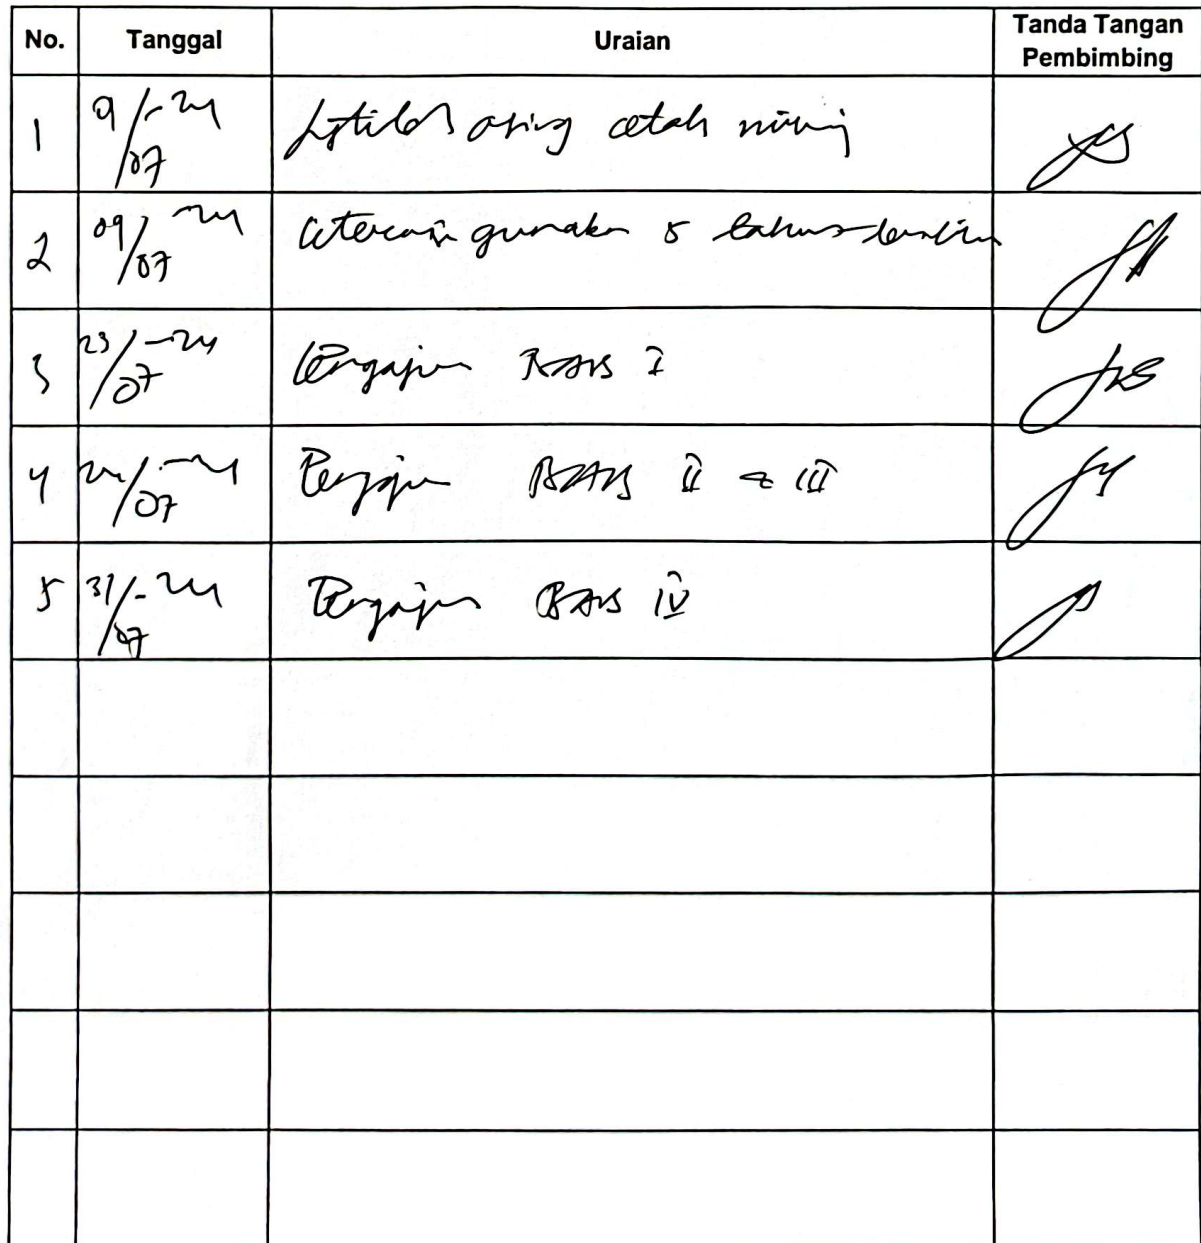 No. Tanggal Uraian Tanda Tangan Pembimbing
1 9/07-24 Istilah asing cetak miring
2 09/07-24 gunakan 5 tahun
3 23/07-24 Pengajuan BAB I
4 24/07-24 Pengajuan BAB II & III
5 31/07-24 Pengajuan BAB IV